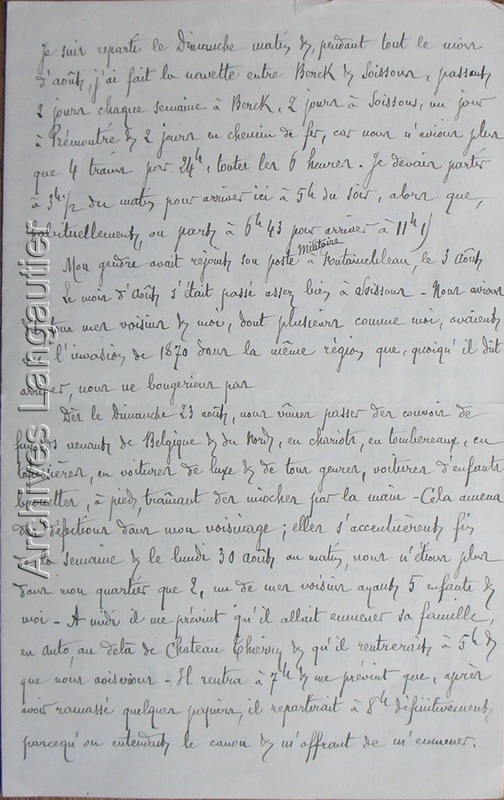 Je suis reparti le Dimanche matin &, pendant tout le mois
d'août, j'ai fait la navette entre Berck & Soissons, passant
2 jours chaque semaine à Berck, 2 jours à Soissons, un jour
à Prémontré & 2 jours en chemin de fer, car nous n'avions plus
que 4 trains par 24h, toutes les 6 heures. Je devais partir
à 3h 1/2 du matin pour arriver ici à 5h du soir, alors que,
habituellement, on part à 6h 43 pour arriver à 11h 1)
Militaire
Mon gendre avait rejoint son poste à Fontainebleau, le 3 août
Le mois d'Août s'était passé assez bien à Soissons - Nous avions
tous mes voisins & moi, dont plusieurs comme moi, avaient
l'invasion de 1870 dans la même région que, quoiqu'il dût
arriver, nous ne bougerions pas
Dès le Dimanche 23 août, nous vîmes passer des convois de
fuyards venant de Belgique & du Nord, en chariots, en tombereaux, en
tapissières, en voitures de luxe & de tous genres, voitures d'enfants
brouettes, à pied, traînant des mioches par la main - Cela amena
des défections dans mon voisinage ; elles s'accentuèrent fin
la semaine & le lundi 30 Août au matin, nous n'étions plus
dans mon quartier que 2, un de mes voisins ayant 5 enfants &
moi - A midi il me prévint qu'il allait emmener sa famille,
en auto, au delà de Chateau Thierry & qu'il rentrerait à 5h &
que nous aviserions - Il rentra à 7h & me prévint que, après
avoir ramassé quelques papiers, il repartirait à 8h définitivement
parcequ'on entendait le canon & m'offrant de m'emmener.
Archives Langautier